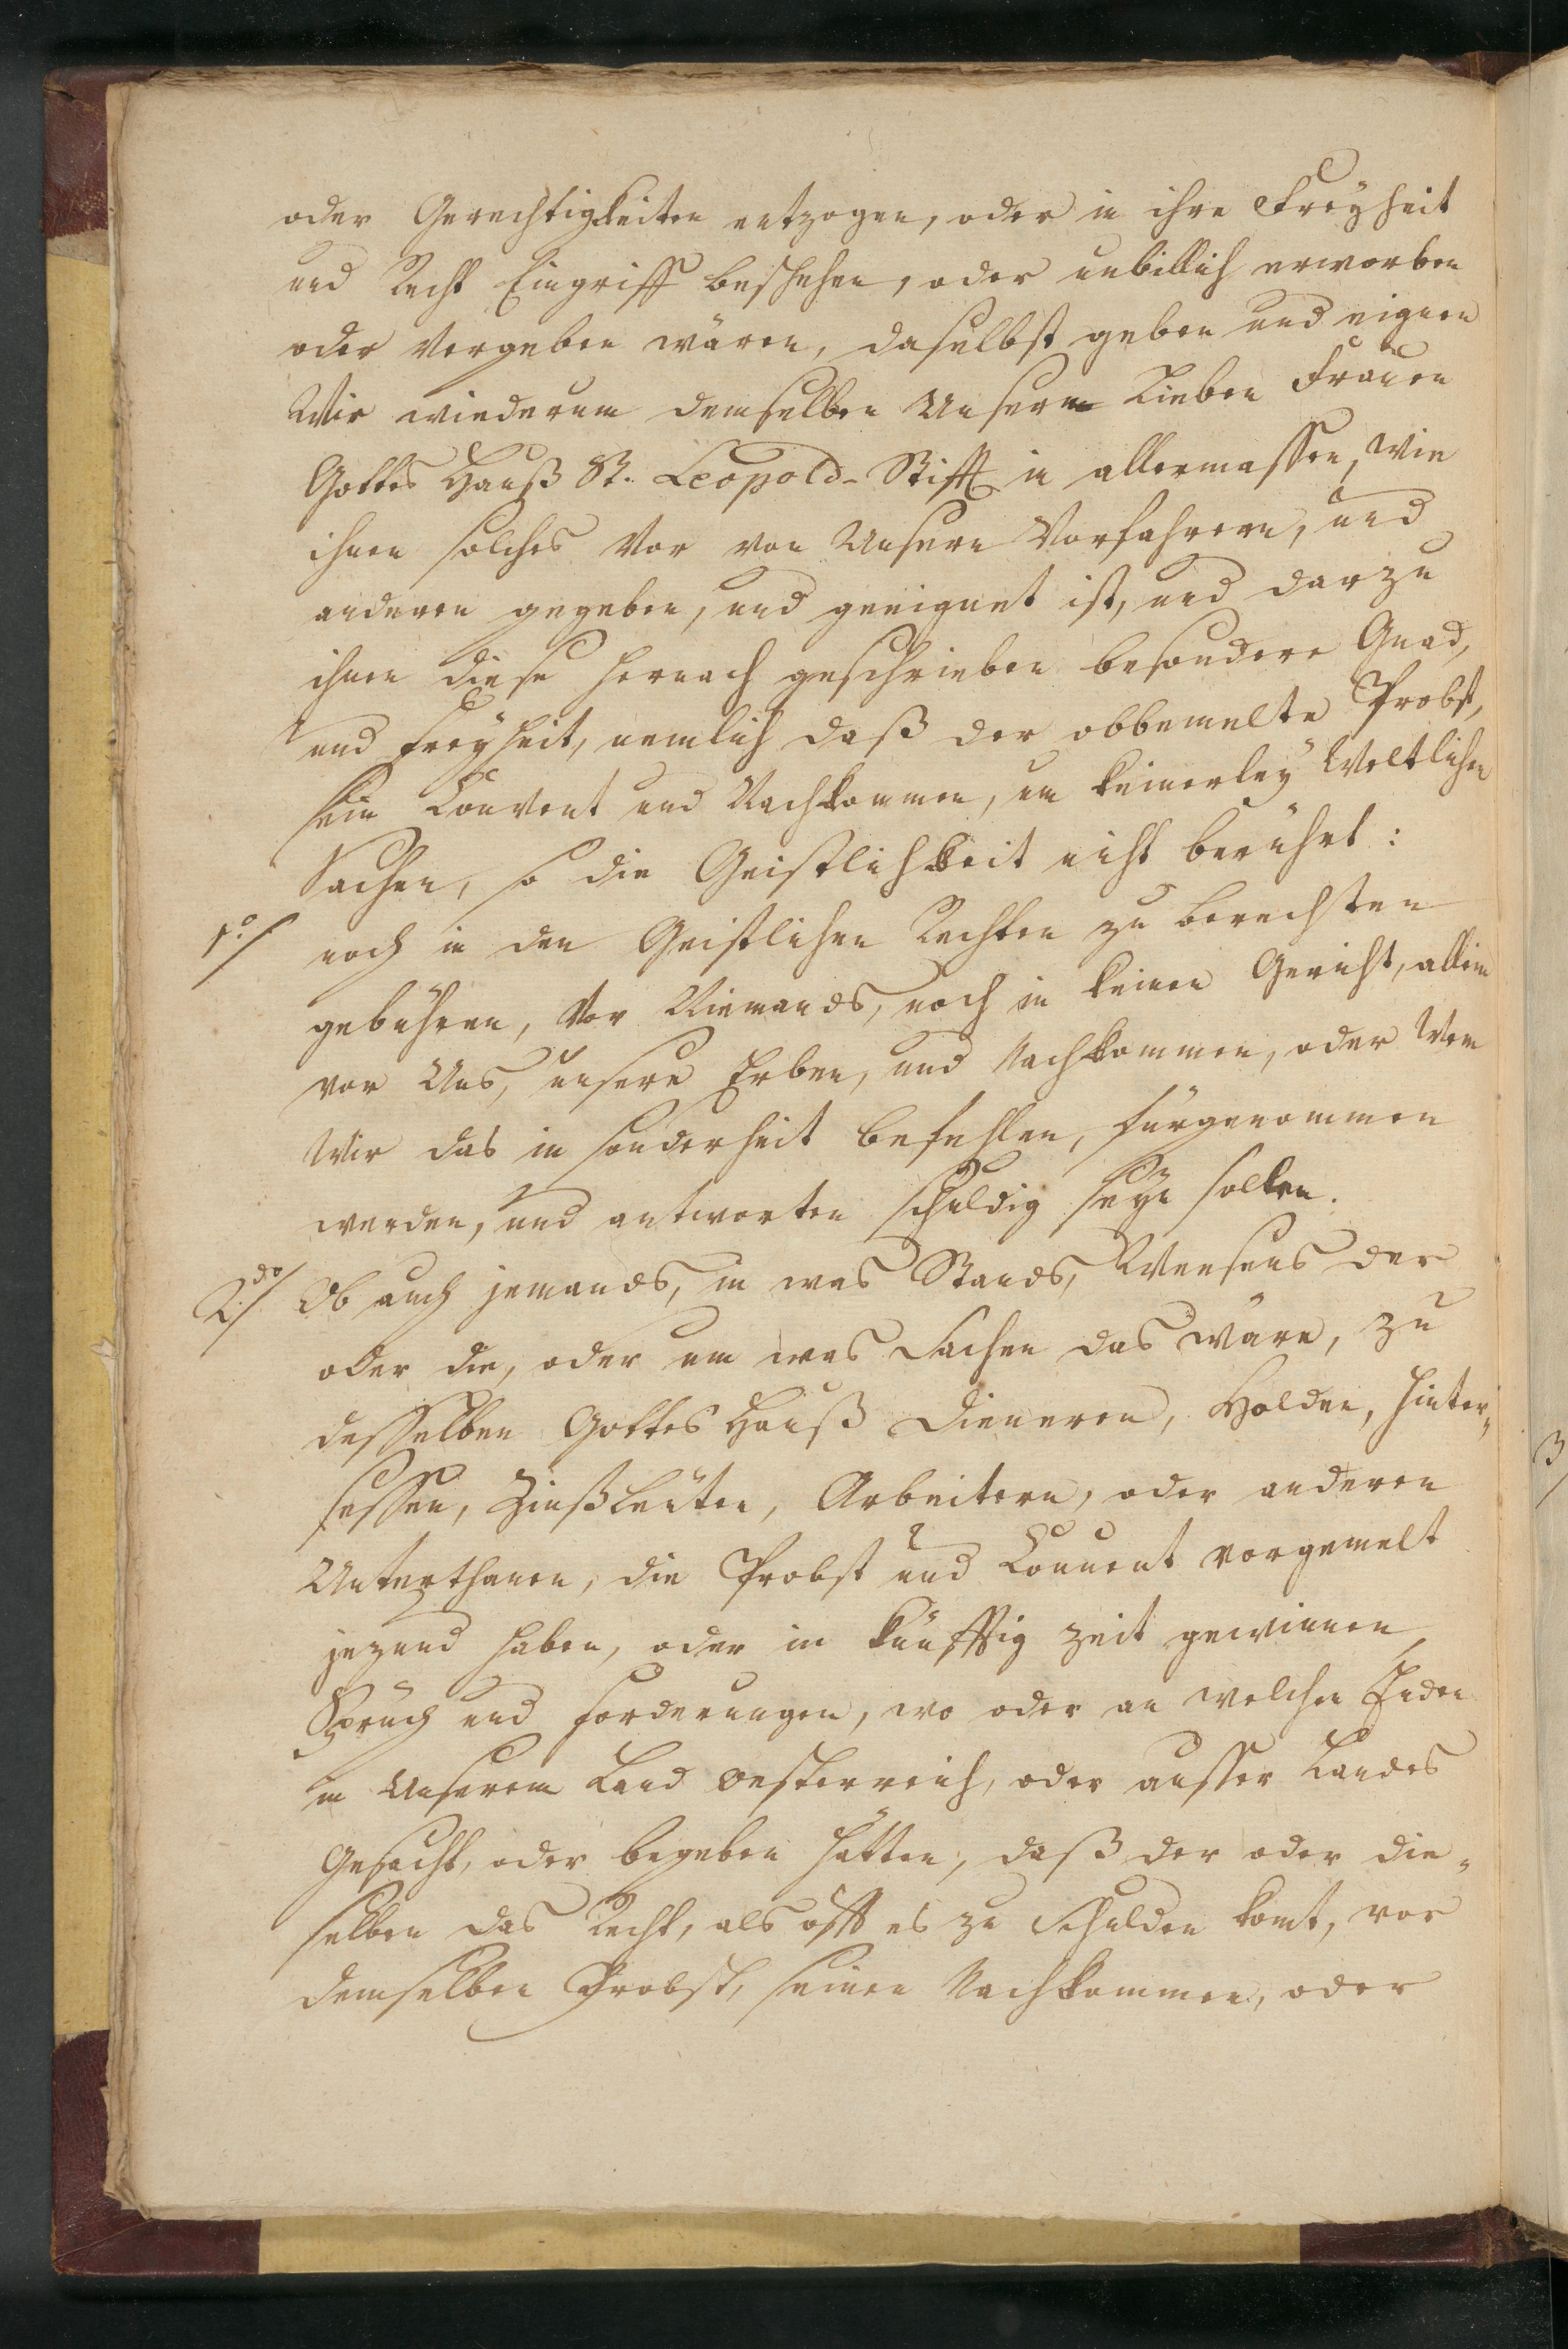 oder Gerechtigkeiten entzogen, oder in ihre Freyheit
und Recht Eingriff beschehen, oder unbillich erworben
oder vergeben wären, daselbst geben und eignen
Wir wiederum demselben Unserm Lieben Frauen
Gottes Hauß St. Leopold-Stifft in allermassen, wie
ihnen solches vor von Unsern Vorfahrern, und
anderen gegeben, und geeignet ist, und darzu
ihnen diese hernach geschrieben besondere Gnad,
und Freyheit, nemlich daß der obbemelte Probst,
sein Convent und Nachkommen, um keinerley Weltlichen
Sachen, so die Geistlichkeit nicht berührt:
1o/ noch in den Geistlichen Rechten zu berechten
gebühren, vor Niemands, noch in keinen Gericht, allein
vor Uns, unsere Erben, und Nachkommen, oder Wem
Wir das in sonderheit befehlen, fürgenommen
werden, und antworten schuldig seyn sollen.
2do/ Ob auch jemands, in was Stands, Weesens der
oder die, oder um was Sachen das wäre, zu
desselben Gottes Hauß Dieneren, Holden, Hinter-
sessen, Zinßleuten, Arbeitern, oder anderen
Unterthanen, die Probst und Convent vorgemelt
jezund haben, oder in künfftig Zeit gewinnen,
Spruch und Forderungen, wo oder an welchen Enden
in Unserem Land Oesterreich, oder ausser Landes
Gesucht, oder begeben hätten, daß der oder die-
selben das Recht, als offt es zu Schulden komt, vor
demselben Probst, seinen Nachkommen, oder
3